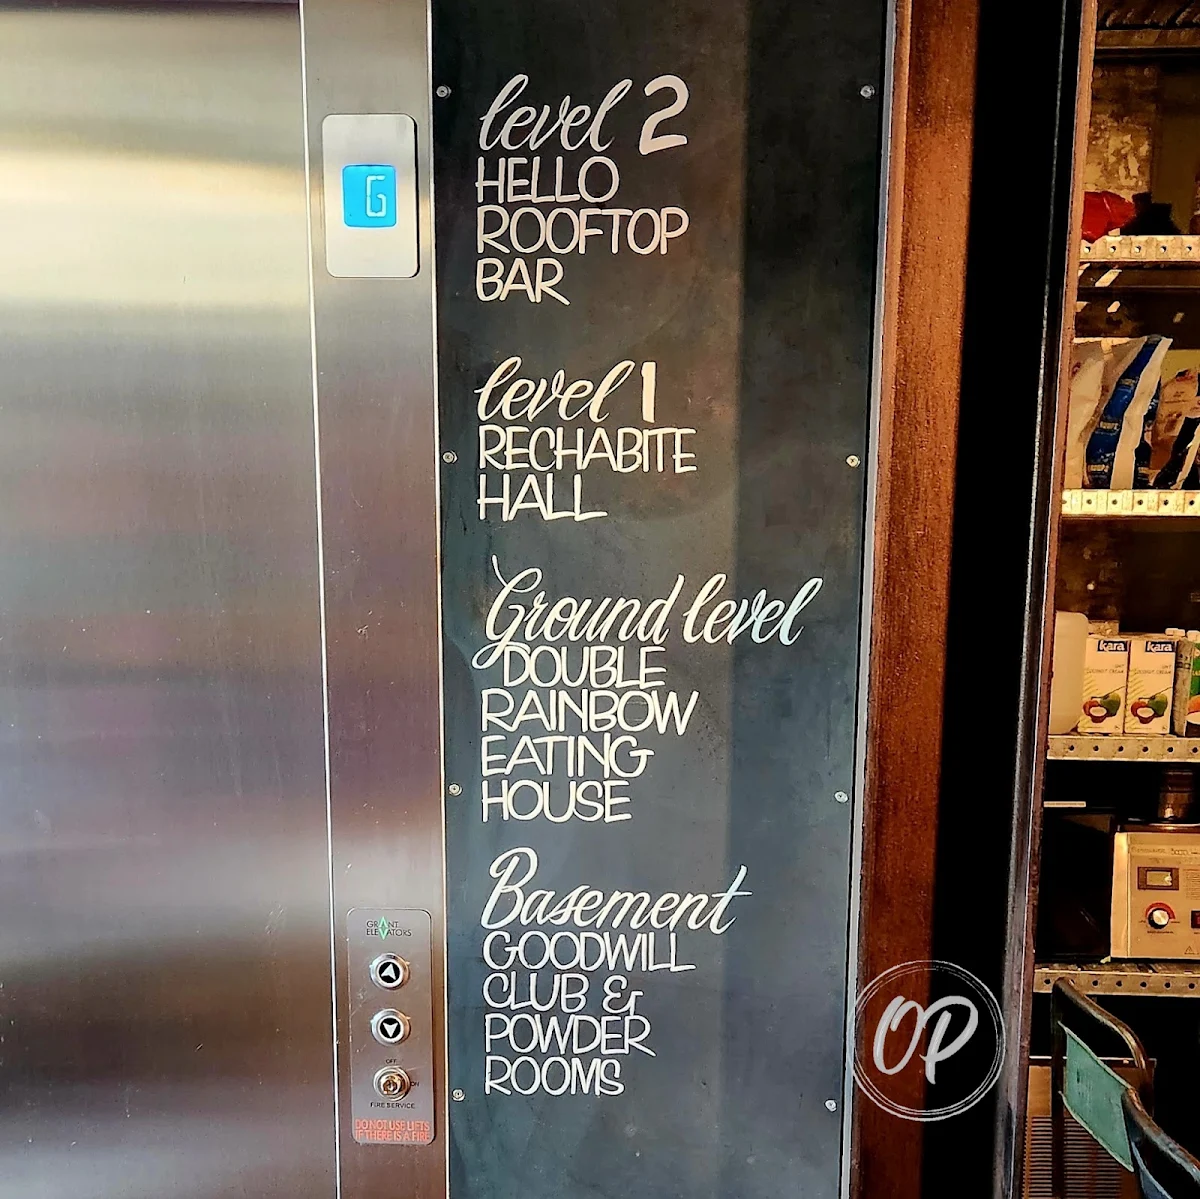 level 2
HELLO
ROOFTOP
BAR
level 1
RECHABITE
HALL
Ground level
DOUBLE
RAINBOW
EATING
HOUSE
Basement
GOODWILL
CLUB &
POWDER
ROOMS
G
GRANT
ELEVATORS
OFF
ON
FIRE SERVICE
DO NOT USE LIFTS
IF THERE IS A FIRE
kara
COCONUT CREAM
kara
COCONUT CREAM
OP